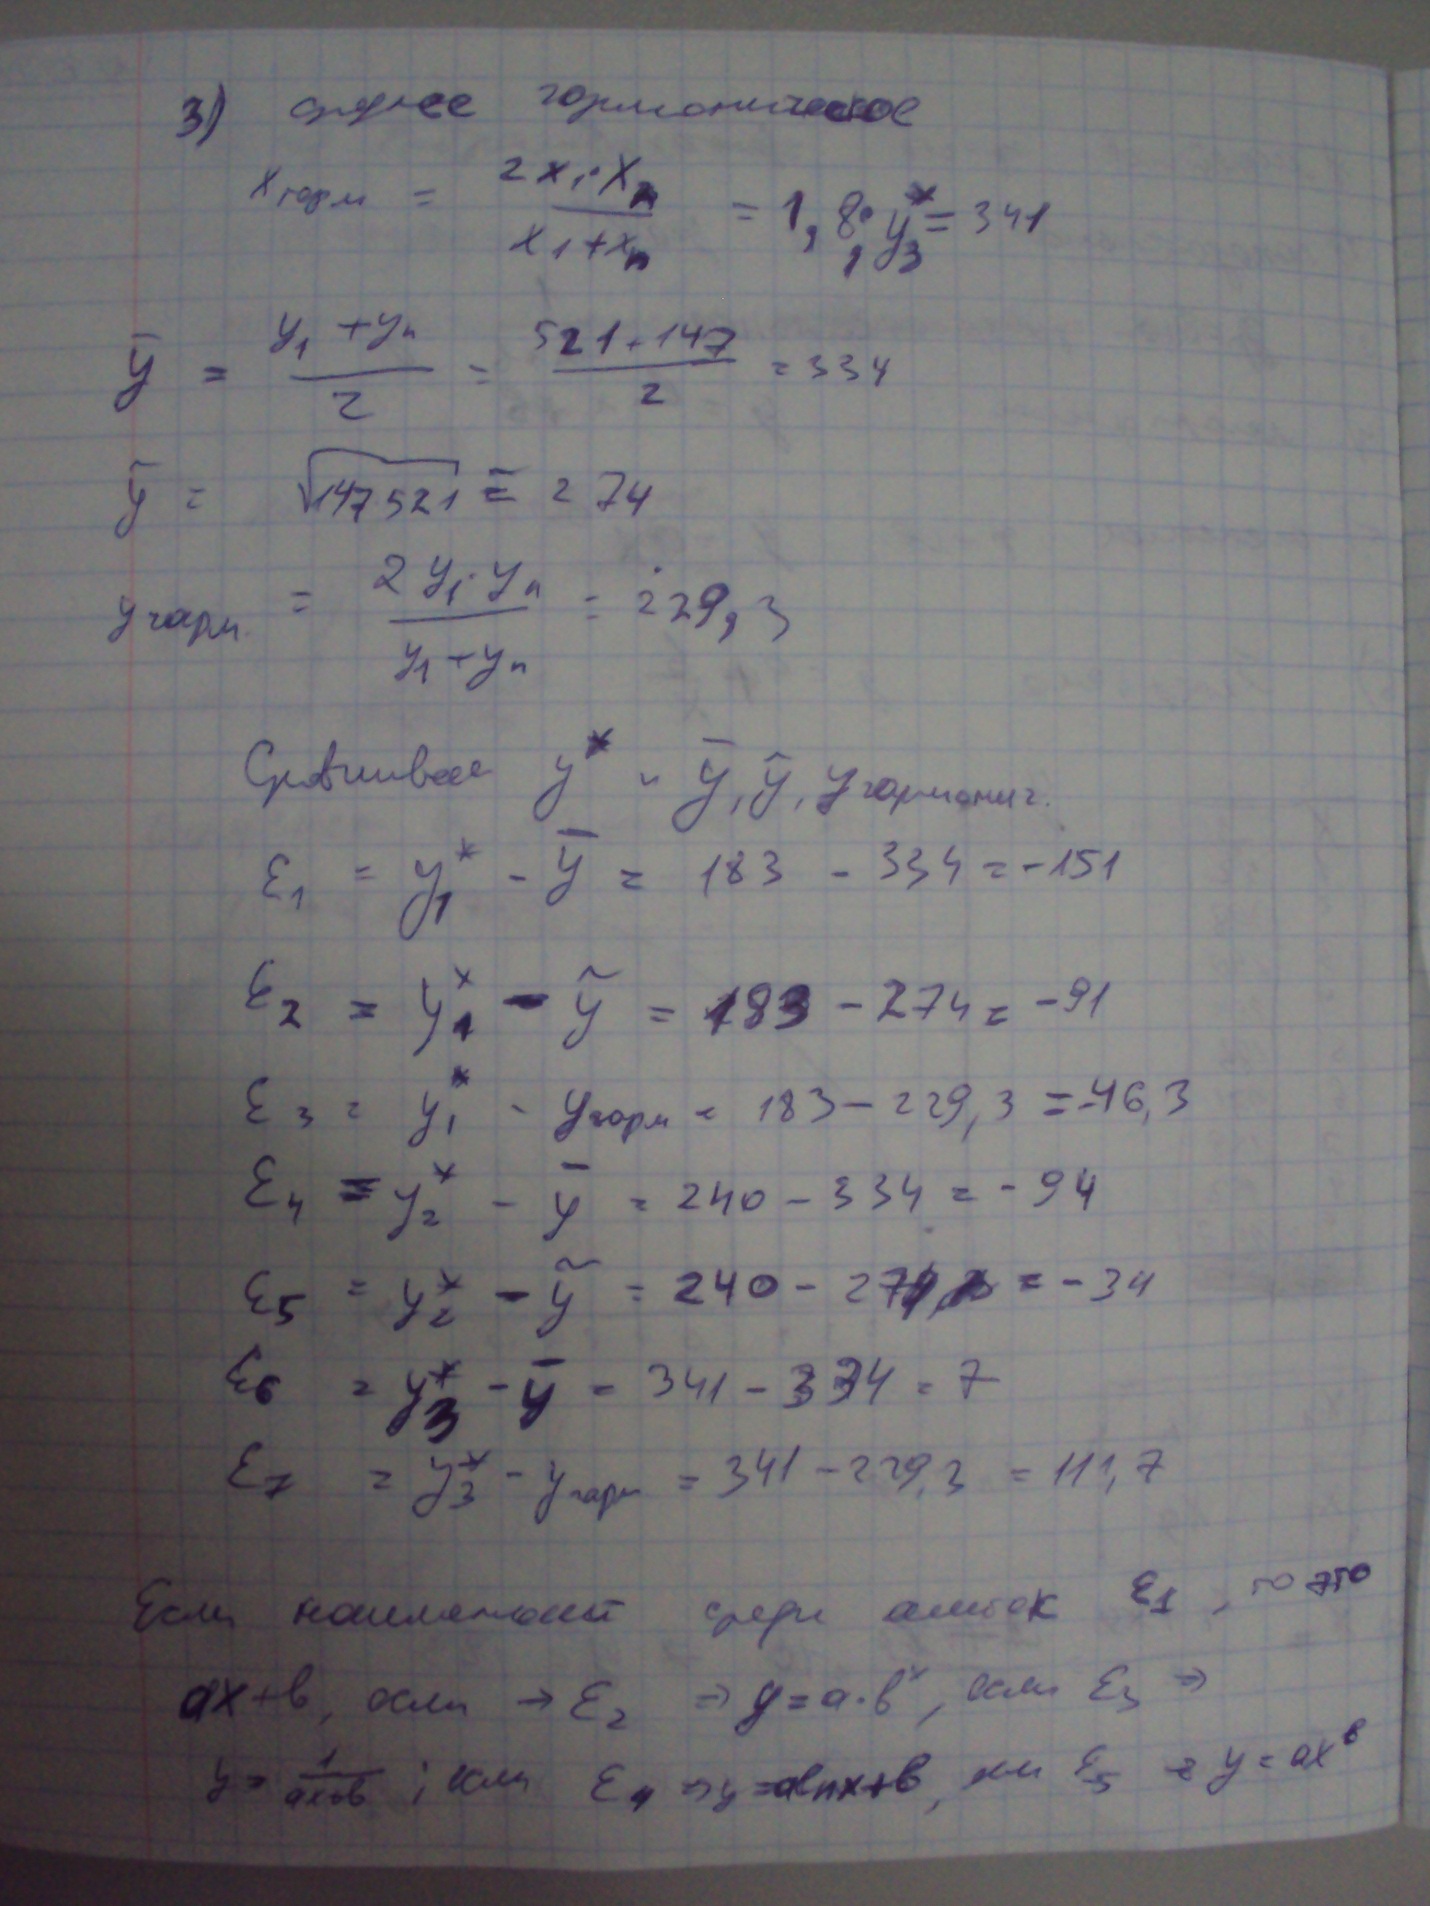 3) среднее гармоническое
x гарм = 2x₁·xₙ / x₁+xₙ = 1,8; y₃* = 341
ȳ = y₁+yₙ / 2 = 521+147 / 2 = 334
ỹ = √147 521 = 274
y гарм. = 2y₁·yₙ / y₁+yₙ = 229,3
Сравниваем y* и ȳ, ỹ, y гармонич.
ε₁ = y₁* - ȳ = 183 - 334 = -151
ε₂ = y₁* - ỹ = 183 - 274 = -91
ε₃ = y₁* - y гарм = 183 - 229,3 = -46,3
ε₄ = y₂* - ȳ = 240 - 334 = -94
ε₅ = y₂* - ỹ = 240 - 274 = -34
ε₆ = y₃* - ȳ = 341 - 334 = 7
ε₇ = y₃* - y гарм = 341 - 229,3 = 111,7
Если наименьшей среди ошибок ε₁, то это
ax+b, если → ε₂ ⇒ y = a·bˣ, если ε₃ ⇒
y = 1 / ax+b ; если ε₄ ⇒ y = alnx+b, если ε₅ ⇒ y = axᵇ